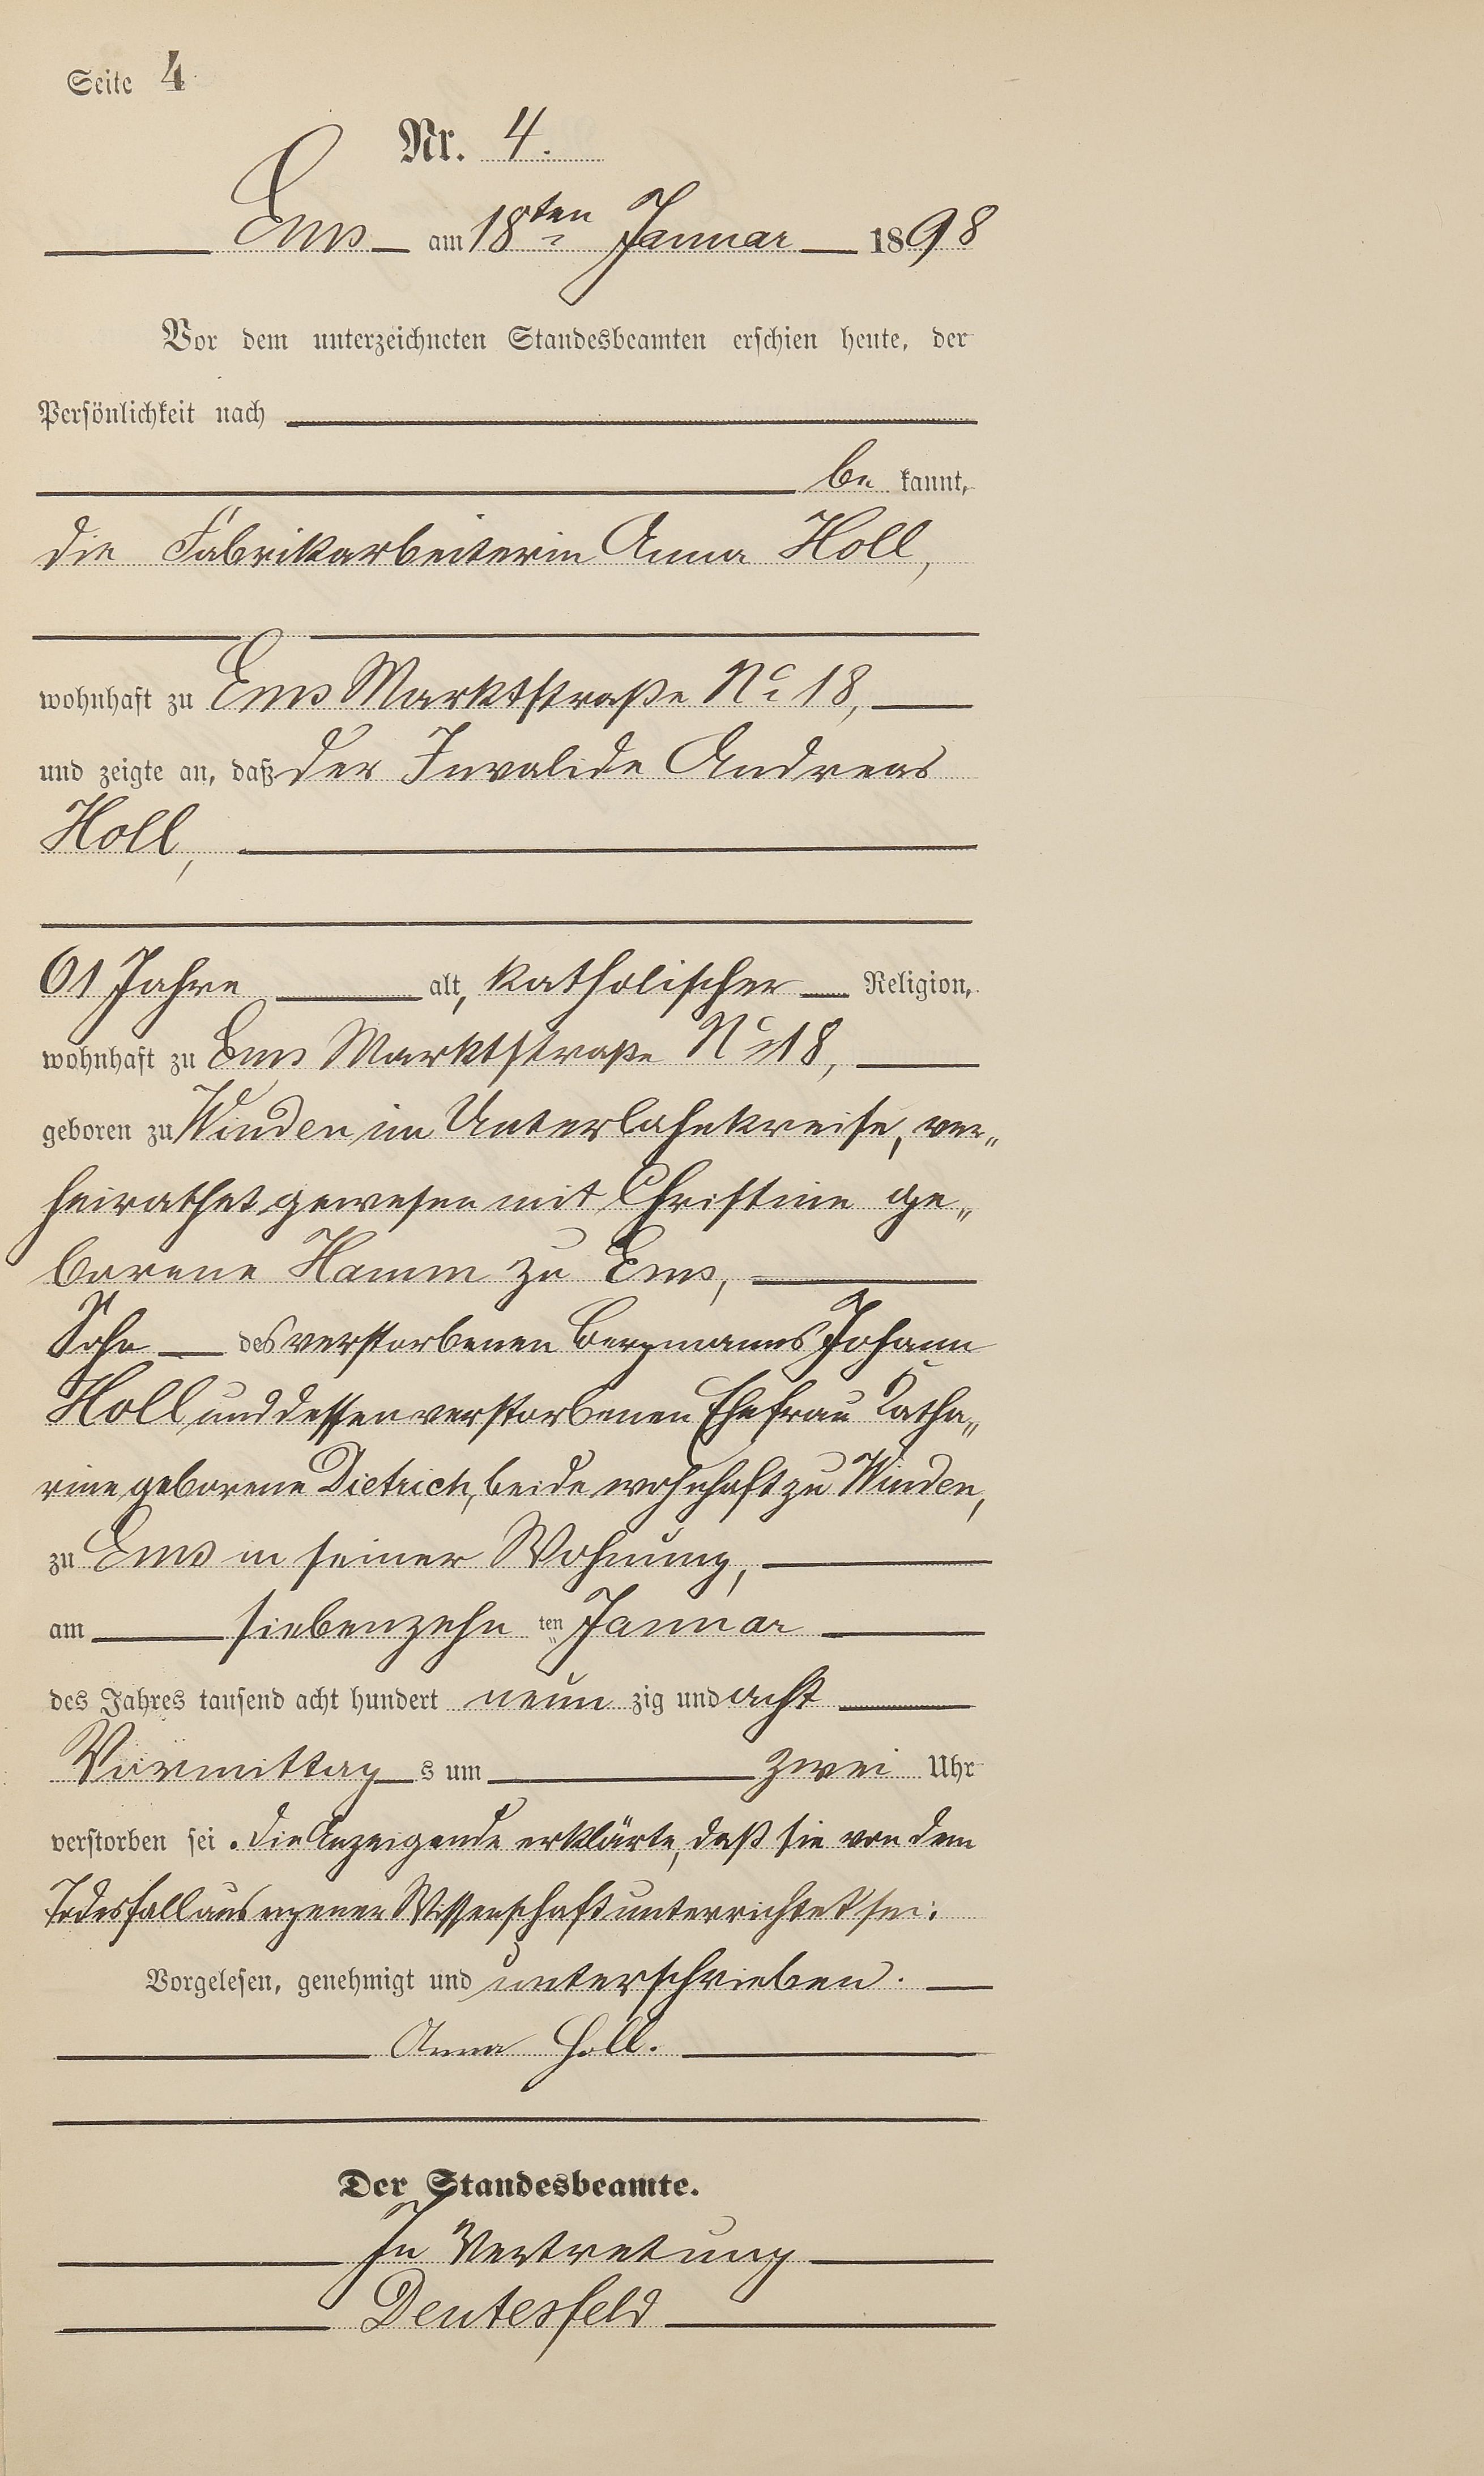 Seite 4
Nr. 4.
Ems am 18ten Januar 1898
Vor dem unterzeichneten Standesbeamten erschien heute, der
Persönlichkeit nach
be kannt,
die Fabrikarbeiterin Anna Holl,
wohnhaft zu Ems Marktstraße No 18,
und zeigte an, daß der Invalide Andreas
Holl,
61 Jahre alt, katholischer Religion,
wohnhaft zu Ems Marktstraße No 18,
geboren zu Winden im Unterlahnkreise, ver„
heirathet gewesen mit Christine ge„
borene Hamm zu Ems,
Sohn des verstorbenen Bergmanns Johann
Holl und dessen verstorbenen Ehefrau Katha„
rine geborene Dietrich, beide wohnhaft zu Winden,
zu Ems in seiner Wohnung,
am siebenzehn ten Januar
des Jahres tausend acht hundert neun zig und acht
Vormittag s um zwei Uhr
verstorben sei. Die Anzeigende erklärte, daß sie von dem
Todesfall aus eigener Wissenschaft unterrichtet sei.
Vorgelesen, genehmigt und unterschrieben.
Anna Holl.
Der Standesbeamte.
In Vertretung
Deutesfeld